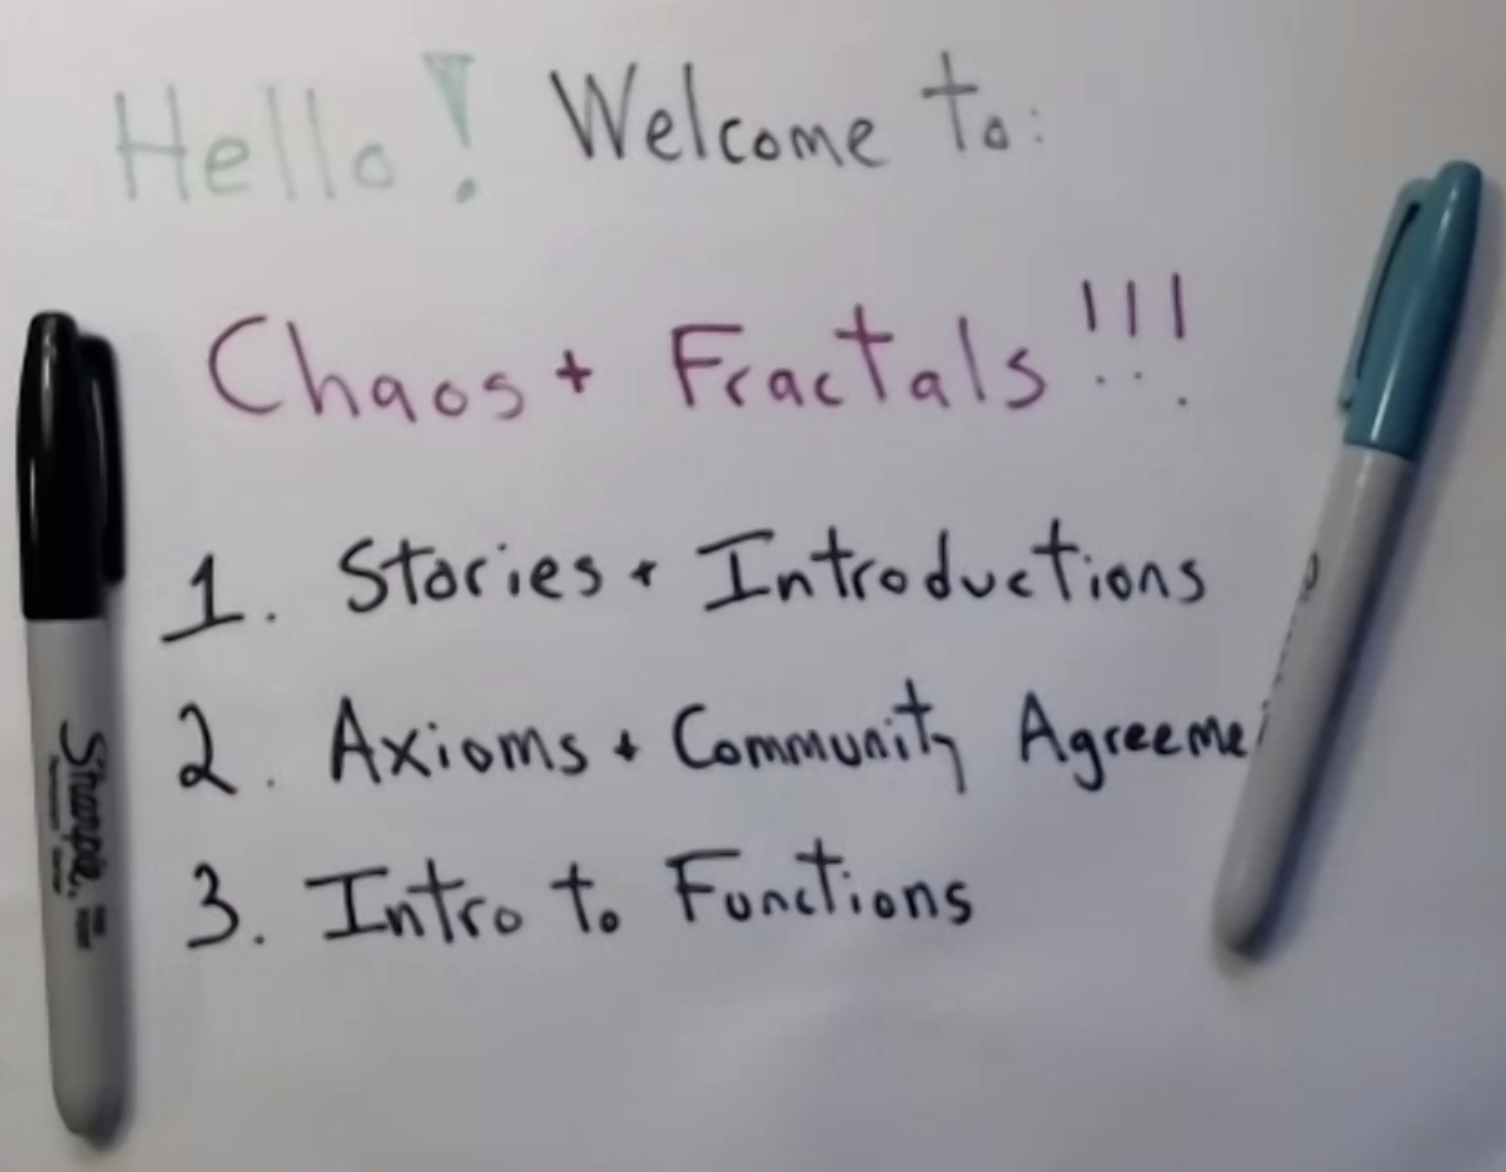 Hello! Welcome to:
Chaos + Fractals!!!
1. Stories + Introductions
2. Axioms + Community Agreeme
3. Intro to Functions
Sharpie